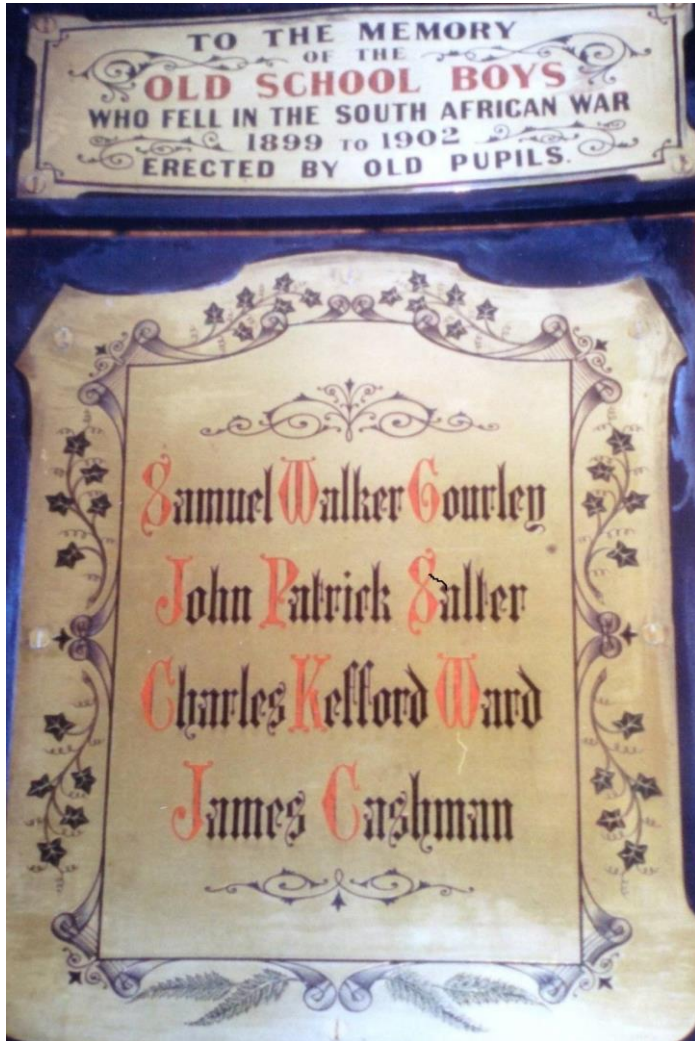 TO THE MEMORY
OF THE
OLD SCHOOL BOYS
WHO FELL IN THE SOUTH AFRICAN WAR
1899 TO 1902
ERECTED BY OLD PUPILS.
Samuel Walker Gourley
John Patrick Salter
Charles Kefford Ward
James Cashman